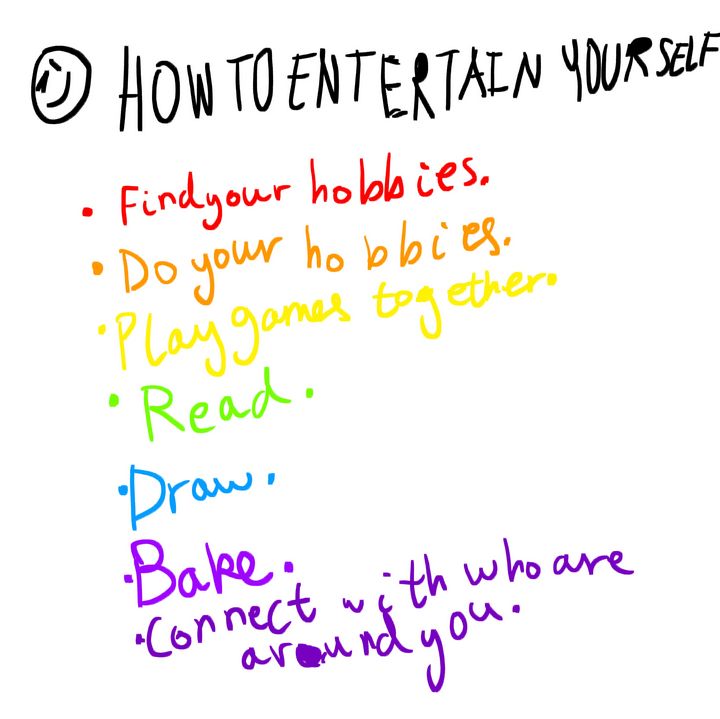 HOW TO ENTERTAIN YOURSELF
• Find your hobbies.
• Do your hobbies.
• Play games together.
• Read.
• Draw.
• Bake.
• Connect with who are
around you.